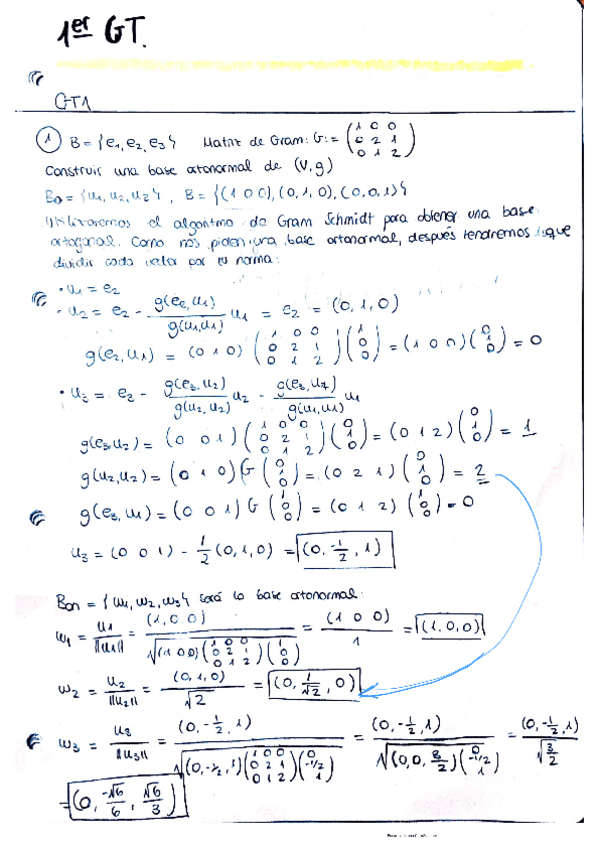 1er GT.
GT1
① B = {e₁, e₂, e₃} Matriz de Gram: G = (1 0 0 / 0 2 1 / 0 1 2)
Construir una base ortonormal de (V, g)
Bo = {u₁, u₂, u₃}, B = {(1 0 0), (0, 1, 0), (0, 0, 1)}
Utilizaremos el algoritmo de Gram Schmidt para obtener una base
ortogonal. Como nos piden una base ortonormal, después tendremos que
dividir cada vector por su norma:
· u₁ = e₂
· u₂ = e₂ - g(e₂, u₁)/g(u₁, u₁) u₁ = e₂ = (0, 1, 0)
g(e₂, u₁) = (0 1 0) (1 0 0 / 0 2 1 / 0 1 2) (1 / 0 / 0) = (1 0 0) (0 / 1 / 0) = 0
· u₃ = e₃ - g(e₃, u₂)/g(u₂, u₂) u₂ - g(e₃, u₁)/g(u₁, u₁) u₁
g(e₃, u₂) = (0 0 1) (1 0 0 / 0 2 1 / 0 1 2) (0 / 1 / 0) = (0 1 2) (0 / 1 / 0) = 1
g(u₂, u₂) = (0 1 0) G (0 / 1 / 0) = (0 2 1) (0 / 1 / 0) = 2
g(e₃, u₁) = (0 0 1) G (1 / 0 / 0) = (0 1 2) (1 / 0 / 0) = 0
u₃ = (0 0 1) - 1/2 (0, 1, 0) = (0, -1/2, 1)
Bon = {ω₁, ω₂, ω₃} será la base ortonormal.
ω₁ = u₁/||u₁|| = (1, 0, 0)/√((1 0 0) (1 0 0 / 0 2 1 / 0 1 2) (1 / 0 / 0)) = (1 0 0)/1 = (1, 0, 0)
ω₂ = u₂/||u₂|| = (0, 1, 0)/√2 = (0, 1/√2, 0)
ω₃ = u₃/||u₃|| = (0, -1/2, 1)/√((0, -1/2, 1) (1 0 0 / 0 2 1 / 0 1 2) (0 / -1/2 / 1)) = (0, -1/2, 1)/√((0, 0, 3/2) (0 / -1/2 / 1)) = (0, -1/2, 1)/√(3/2)
= (0, -√6/6, √6/3)